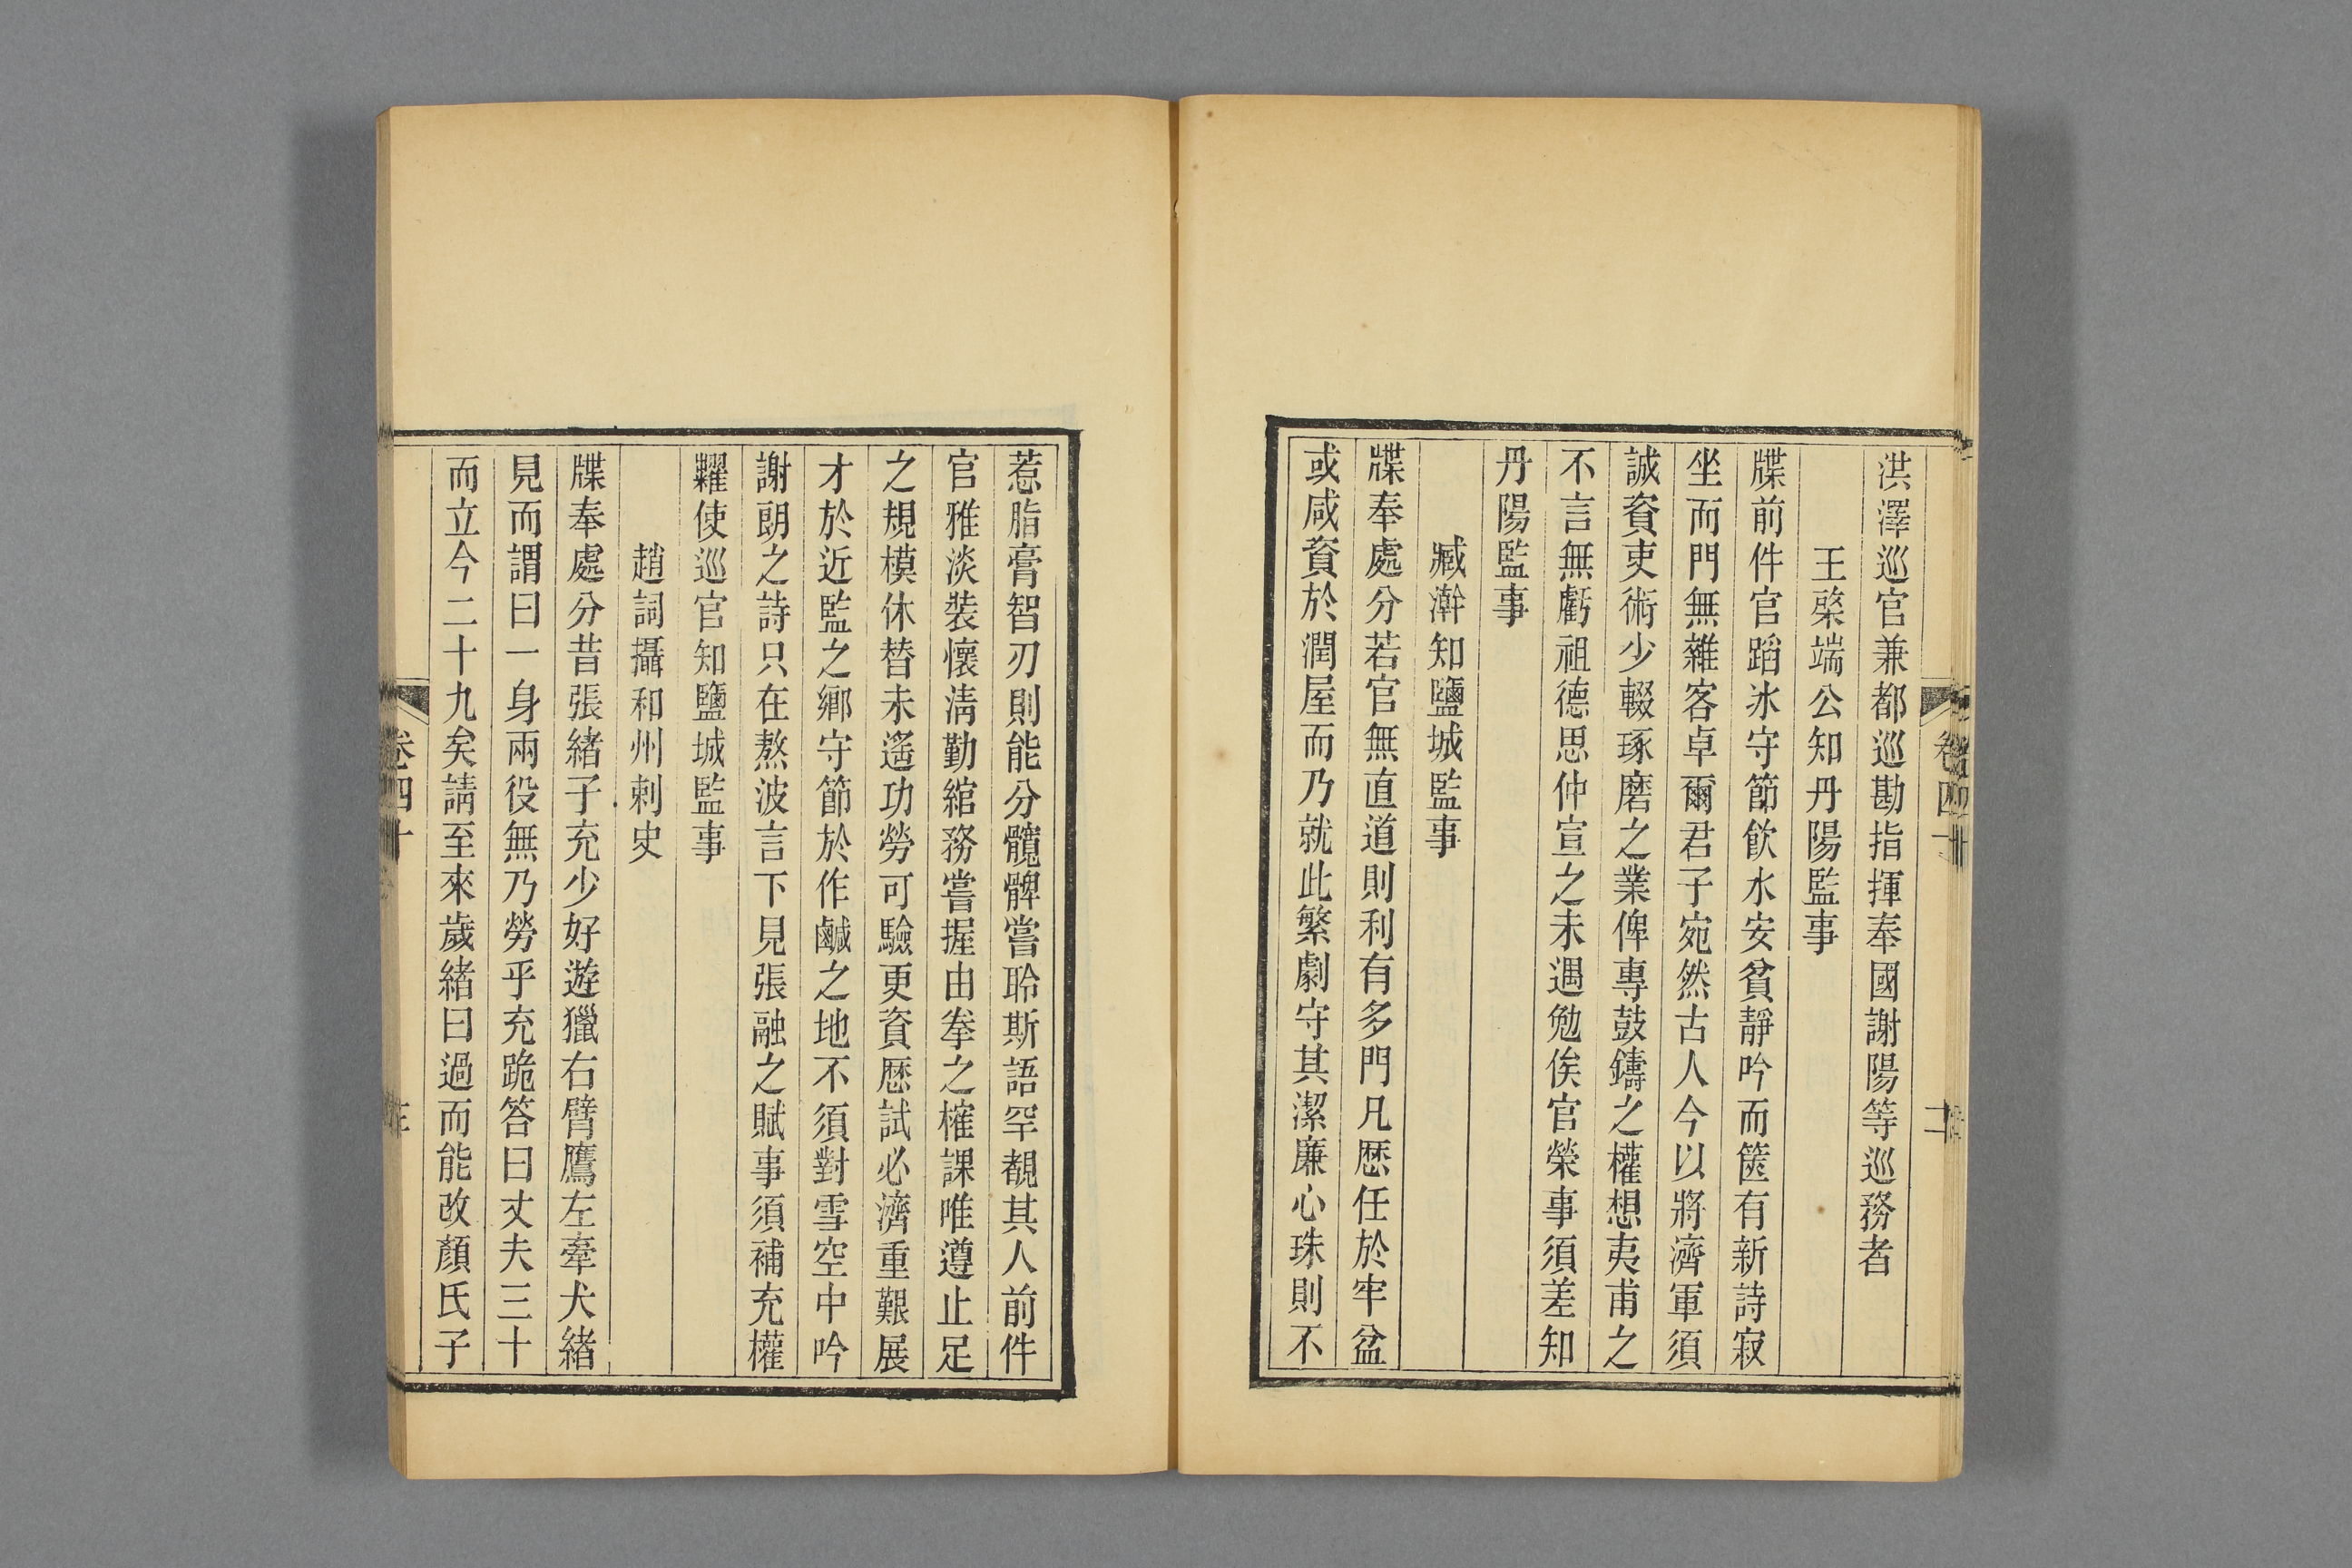 洪澤巡官兼都巡勘指揮奉國謝陽等巡務者
王棨端公知丹陽監事
牒前件官蹈冰守節飲水安貧靜吟而篋有新詩寂
坐而門無雜客卓爾君子宛然古人今以將濟軍須
誠資吏術少輟琢磨之業俾專鼓鑄之權想夷甫之
不言無虧祖德思仲宣之未遇勉俟官榮事須差知
丹陽監事
臧澣知鹽城監事
牒奉處分若官無直道則利有多門凡歷任於牢盆
或咸資於潤屋而乃就此繁劇守其潔廉心珠則不
惹脂膏智刃則能分髖髀嘗聆斯語罕覩其人前件
官雅淡裝懷淸勤綰務嘗握由拳之榷課唯遵止足
之規模休替未遙功勞可驗更資歷試必濟重艱展
才於近監之鄕守節於作鹹之地不須對雪空中吟
謝朗之詩只在熬波言下見張融之賦事須補充權
糶使巡官知鹽城監事
趙詞攝和州刺史
牒奉處分昔張緖子充少好遊獵右臂鷹左牽犬緖
見而謂曰一身兩役無乃勞乎充跪答曰丈夫三十
而立今二十九矣請至來歲緖曰過而能改顏氏子
卷四十